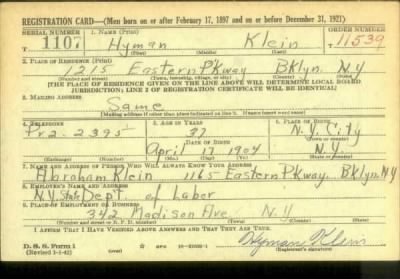 REGISTRATION CARD—(Men born on or after February 17, 1897 and on or before December 31, 1921)
SERIAL NUMBER 1. NAME (Print) ORDER NUMBER
T 1107 Hyman Klein T 11539
(First) (Middle) (Last)
2. PLACE OF RESIDENCE (Print)
1215 Eastern Pkway Bklyn. N.Y
(Number and street) (Town, township, village, or city) (County) (State)
[THE PLACE OF RESIDENCE GIVEN ON THE LINE ABOVE WILL DETERMINE LOCAL BOARD
JURISDICTION; LINE 2 OF REGISTRATION CERTIFICATE WILL BE IDENTICAL]
3. MAILING ADDRESS
Same
[Mailing address if other than place indicated on line 2. If same insert word same]
4. TELEPHONE 5. AGE IN YEARS 6. PLACE OF BIRTH
Pr 2-2395 37 N.Y. City
DATE OF BIRTH (Town or county)
April 17 1904 N.Y.
(Exchange) (Number) (Mo.) (Day) (Yr.) (State or country)
7. NAME AND ADDRESS OF PERSON WHO WILL ALWAYS KNOW YOUR ADDRESS
Abraham Klein 1165 Eastern Pkway. Bklyn. N.Y
8. EMPLOYER'S NAME AND ADDRESS
N.Y. State Dept of Labor
9. PLACE OF EMPLOYMENT OR BUSINESS
342 Madison Ave N.Y
(Number and street or R. F. D. number) (Town) (County) (State)
I AFFIRM THAT I HAVE VERIFIED ABOVE ANSWERS AND THAT THEY ARE TRUE.
D. S. S. Form 1
(Revised 1-1-42) (over) GPO
Hyman Klein
(Registrant's signature)